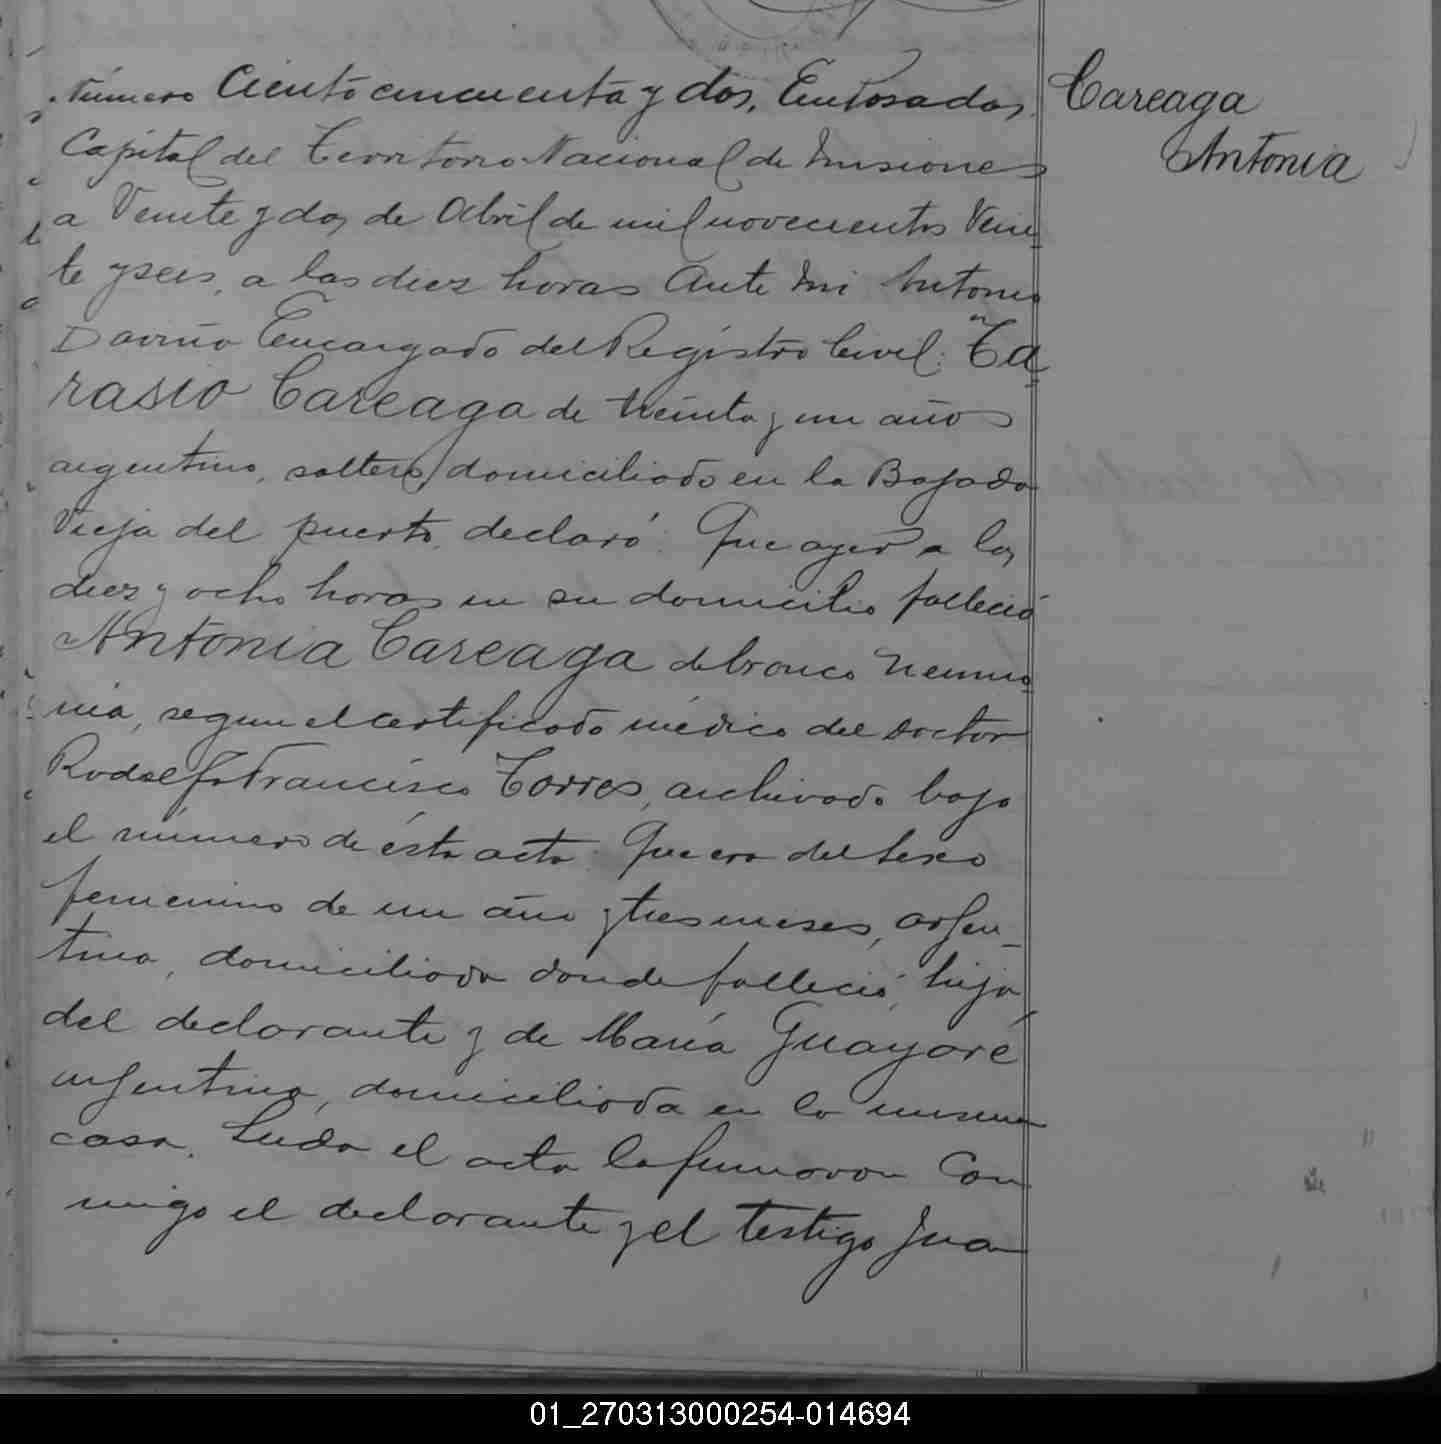 Número Ciento cincuenta y dos. En Posadas
Capital del Territorio Nacional de Misiones
a Veinte y dos de Abril de mil novecientos Vein-
te y seis, a las diez horas Ante Mi Antonio
Daviña Encargado del Registro Civil: Ta-
rasio Careaga de treinta y un años
argentino, soltero domiciliado en la Bajada
Vieja del puerto, declaró: Que ayer a las
diez y ocho horas en su domicilio falleció
Antonia Careaga de bronco neumo-
nia, segun el certificado médico del doctor
Rodolfo Francisco Torres, archivado bajo
el número de ésta acta: Que era del sexo
femenino de un año y tres meses, argen-
tina, domiciliada donde falleció, hija
del declarante y de María Guayaré
argentina, domiciliada en la misma
casa. Leida el acta la firmaron Con
migo el declarante y el testigo Juan
Careaga
Antonia
01_270313000254-014694